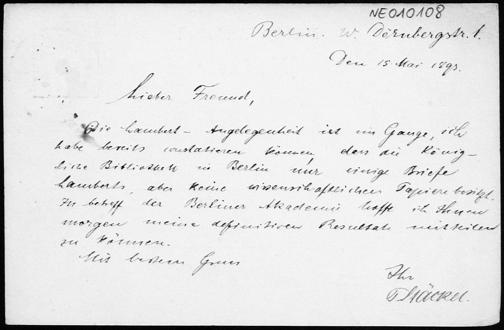 NE010108
Berlin. W. Dörnbergstr. 1.
Den 15 Mai 1893.
Lieber Freund,
Die Lambert-Angelegenheit ist im Gange, ich
habe bereits constatieren können, dass die König-
liche Bibliothek in Berlin nur einige Briefe
Lamberts, aber keine wissenschaftlichen Papiere besitzt.
In betreff der Berliner Akademie hoffe ich Ihnen
morgen meine definitiven Resultate mitteilen
zu können.
Mit bestem Gruss
Ihr
P Stäckel.